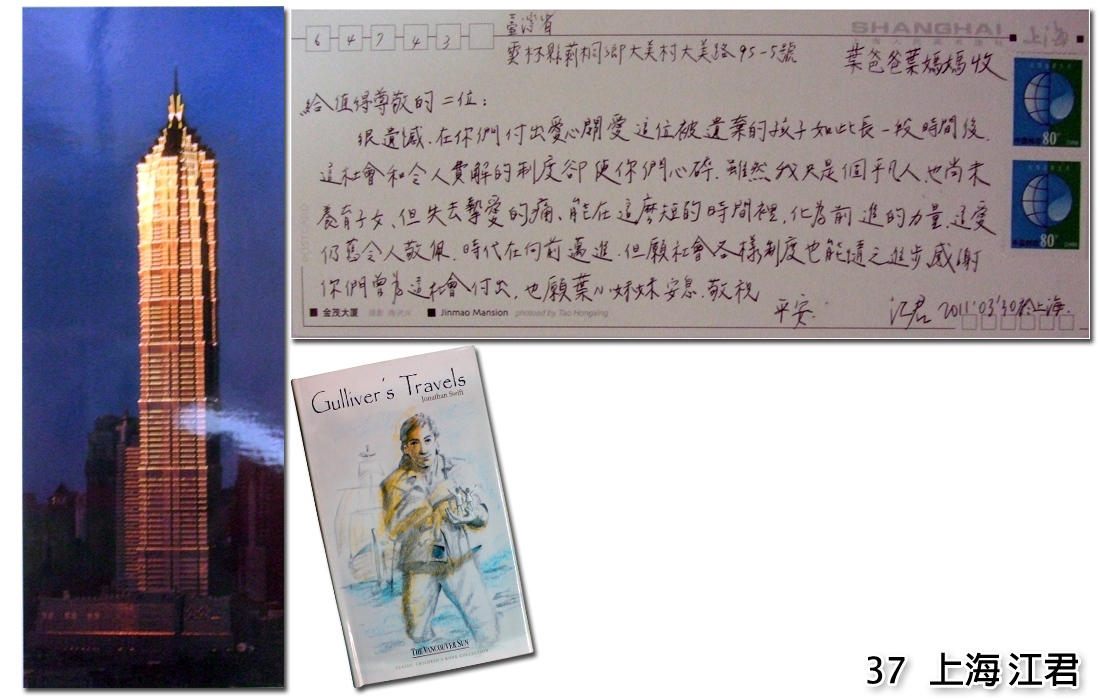 64743
臺灣省
雲林縣莿桐鄉大美村大美路95-5號
SHANGHAI
葉爸爸葉媽媽收
給值得尊敬的二位：
很遺憾，在你們付出愛心關愛這位被遺棄的孩子如此長一段時間後，
這社會和令人費解的制度卻使你們心碎。雖然我只是個平凡人，也尚未
養育子女，但失去摯愛的痛，能在這麼短的時間裡，化為前進的力量，這愛
仍舊令人敬佩。時代在向前邁進，但願社會各樣制度也能隨之進步，感謝
你們曾為這社會付出，也願葉小妹妹安息，敬祝
平安.
江君 2011.03.30於上海.
80
80
■ 金茂大厦
■ Jinmao Mansion photoed by Tao Hongxing
Gulliver's Travels
Jonathan Swift
THE VANCOUVER SUN
CLASSIC CHILDREN'S BOOK COLLECTION
37 上海 江君